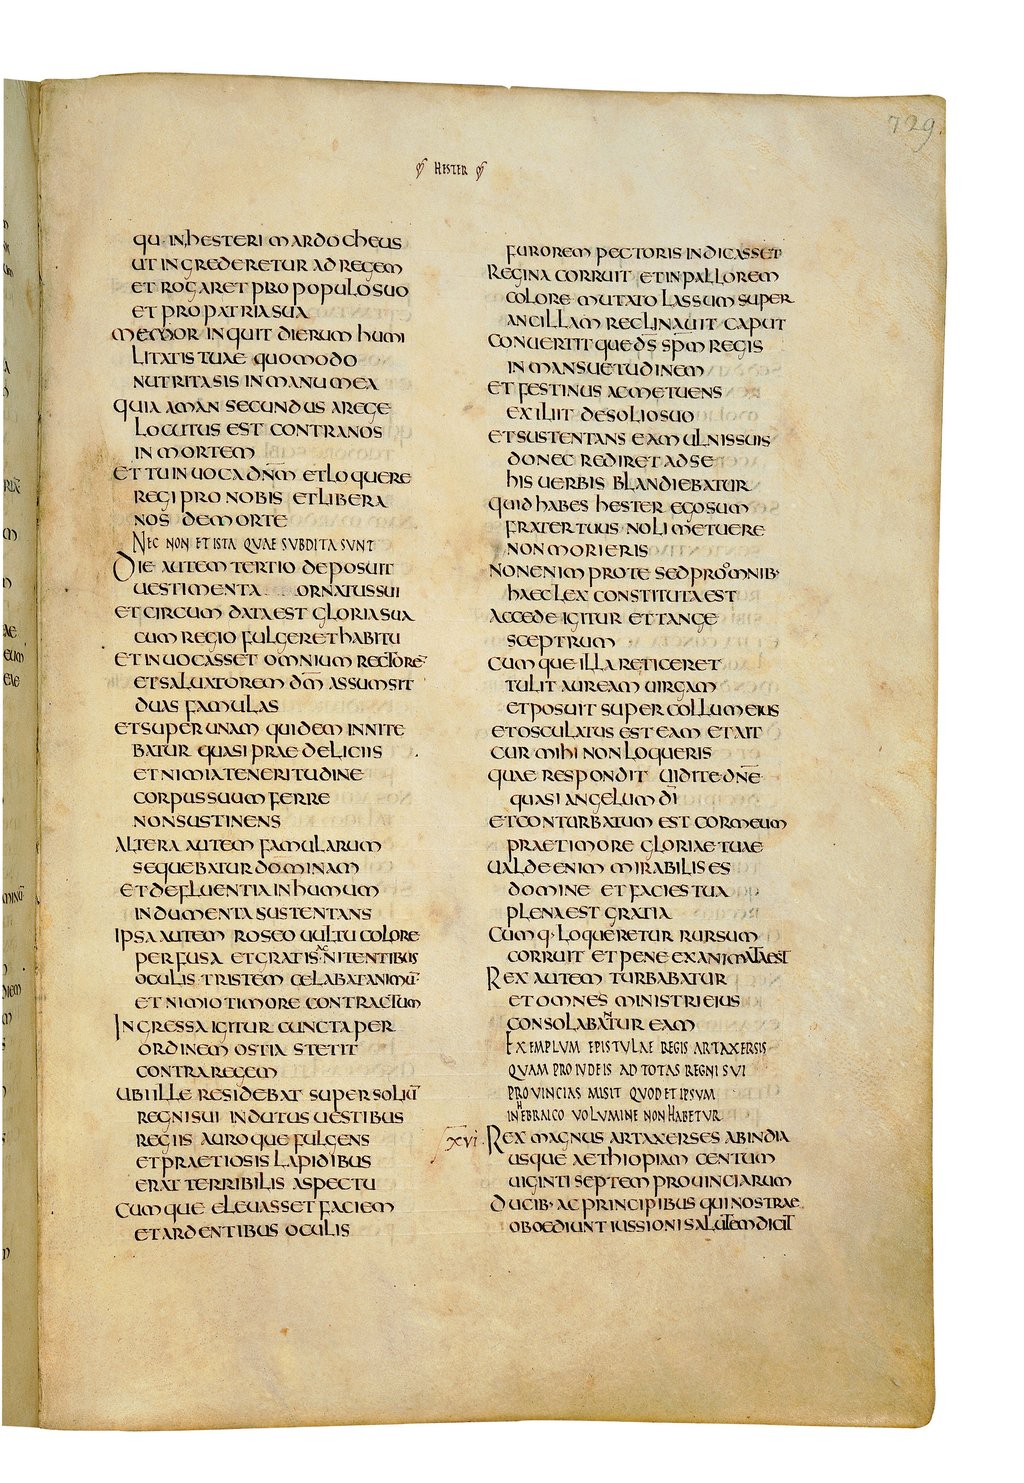 729
HESTER
QUIN HESTERI MARDOCHEUS
UT INGREDERETUR AD REGEM
ET ROGARET PRO POPULO SUO
ET PRO PATRIA SUA
MEMOR INQUIT DIERUM HUMI
LITATIS TUAE QUOMODO
NUTRITA SIS IN MANU MEA
QUIA AMAN SECUNDUS A REGE
LOCUTUS EST CONTRA NOS
IN MORTEM
ET TU INUOCA DNM ET LOQUERE
REGI PRO NOBIS ET LIBERA
NOS DE MORTE
NEC NON ET ISTA QUAE SUBDITA SUNT
DIE AUTEM TERTIO DEPOSUIT
UESTIMENTA ORNATUS SUI
ET CIRCUMDATA EST GLORIA SUA
CUM REGIO FULGERET HABITU
ET INUOCASSET OMNIUM RECTORE
ET SALUATOREM DM ASSUMSIT
DUAS FAMULAS
ET SUPER UNAM QUIDEM INNITE
BATUR QUASI PRAE DELICIIS
ET NIMIA TENERITUDINE
CORPUS SUUM FERRE
NON SUSTINENS
ALTERA AUTEM FAMULARUM
SEQUEBATUR DOMINAM
ET DEFLUENTIA IN HUMUM
INDUMENTA SUSTENTANS
IPSA AUTEM ROSEO UULTU COLORE
PERFUSA ET GRATIS AC NITENTIBUS
OCULIS TRISTEM CELABAT ANIMU
ET NIMIO TIMORE CONTRACTUM
INGRESSA IGITUR CUNCTA PER
ORDINEM OSTIA STETIT
CONTRA REGEM
UBI ILLE RESIDEBAT SUPER SOLIU
REGNI SUI INDUTUS UESTIBUS
REGIIS AUROQUE FULGENS
ET PRAETIOSIS LAPIDIBUS
ERAT TERRIBILIS ASPECTU
CUMQUE ELEUASSET FACIEM
ET ARDENTIBUS OCULIS
FUROREM PECTORIS INDICASSET
REGINA CORRUIT ET IN PALLOREM
COLORE MUTATO LASSUM SUPER
ANCILLAM RECLINAUIT CAPUT
CONUERTITQUE DS SPM REGIS
IN MANSUETUDINEM
ET FESTINUS AC METUENS
EXILIIT DE SOLIO SUO
ET SUSTENTANS EAM ULNIS SUIS
DONEC REDIRET AD SE
HIS UERBIS BLANDIEBATUR
QUID HABES HESTER EGO SUM
FRATER TUUS NOLI METUERE
NON MORIERIS
NON ENIM PRO TE SED PRO OMNIB·
HAEC LEX CONSTITUTA EST
ACCEDE IGITUR ET TANGE
SCEPTRUM
CUMQUE ILLA RETICERET
TULIT AUREAM UIRGAM
ET POSUIT SUPER COLLUM EIUS
ET OSCULATUS EST EAM ET AIT
CUR MIHI NON LOQUERIS
QUAE RESPONDIT UIDI TE DNE
QUASI ANGELUM DI
ET CONTURBATUM EST COR MEUM
PRAE TIMORE GLORIAE TUAE
UALDE ENIM MIRABILIS ES
DOMINE ET FACIES TUA
PLENA EST GRATIA
CUMQ· LOQUERETUR RURSUM
CORRUIT ET PENE EXANIMATA EST
REX AUTEM TURBABATUR
ET OMNES MINISTRI EIUS
CONSOLABANTUR EAM
EXEMPLUM EPISTULAE REGIS ARTAXERSIS
QUAM PRO IUDEIS AD TOTAS REGNI SUI
PROUINCIAS MISIT QUOD ET IPSUM
IN HEBRAICO UOLUMINE NON HABETUR
XVI REX MAGNUS ARTAXERSES AB INDIA
USQUE AETHIOPIAM CENTUM
UIGINTI SEPTEM PROUINCIARUM
DUCIB· AC PRINCIPIBUS QUI NOSTRAE
OBOEDIUNT IUSSIONI SALUTEM DICIT